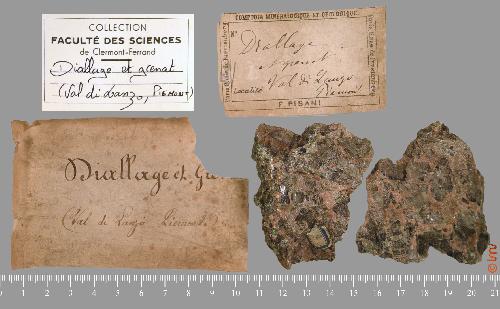 COLLECTION
FACULTÉ DES SCIENCES
de Clermont-Ferrand
Diallage et grenat
(Val di Lanzo, PIEMONT)
COMPTOIR MINÉRALOGIQUE ET GÉOLOGIQUE
N°
Diallage
et grenat
Val di Lanzo
Localité
Piémont
F. PISANI
Diallage et
(Val de Lanzo Piémont)
0 1 2 3 4 5 6 7 8 9 10 11 12 13 14 15 16 17 18 19 20 21